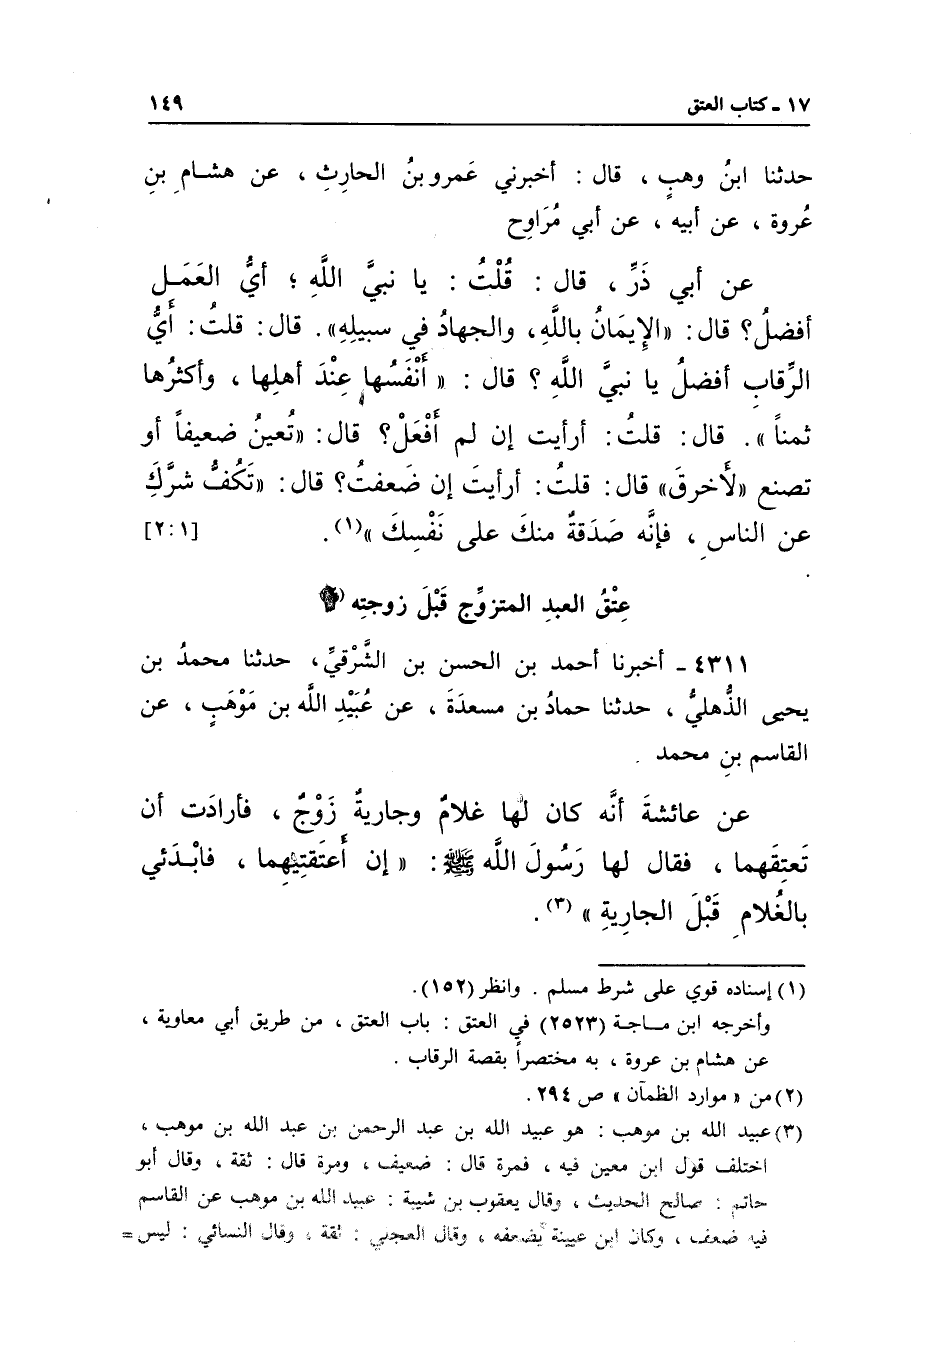 ١٧ ـ كتاب العتق ١٤٩
حدثنا ابنُ وهبٍ ، قال : أخبرني عَمرو بنُ الحارِثِ ، عن هشام بنِ
عُروة ، عن أبيه ، عن أبي مُرَاوِح
عن أبي ذَرٍّ ، قال : قُلْتُ : يا نبيَّ اللَّهِ ؛ أيُّ العَمَل
أفضلُ؟ قال: «الإِيمَانُ باللَّهِ، والجهادُ في سبيلِهِ». قال: قلتُ: أَيُّ
الرِّقابِ أفضلُ يا نبيَّ اللَّهِ ؟ قال : « أَنْفَسُها عِنْدَ أهلِها ، وأكثرُها
ثمناً ». قال: قلتُ: أرأيت إن لم أَفْعَلْ؟ قال: «تُعينُ ضعيفاً أو
تصنع «لأَخرقَ» قال: قلتُ: أرأيتَ إن ضَعفتُ؟ قال: «تَكُفُّ شرَّكَ
عن الناسِ ، فإنَّه صَدَقةٌ منكَ على نَفْسِكَ »(١). [٢:١]
عِتْقُ العبدِ المتزوِّجِ قَبْلَ زوجتِه
٤٣١١ ـ أخبرنا أحمد بن الحسن بن الشَّرْقيِّ، حدثنا محمدُ بن
يحيى الذُّهليُّ ، حدثنا حمادُ بن مسعدَةَ ، عن عُبَيْدِ اللَّه بن مَوْهَبٍ ، عن
القاسم بنِ محمد
عن عائشةَ أنَّه كان لها غلامٌ وجاريةٌ زَوْجٌ ، فأرادَت أن
تَعتِقَهما ، فقال لها رَسُولَ اللَّه ﷺ : « إن أَعتَقتِيْهِما ، فابْدَئي
بالغُلامِ قَبْلَ الجارِيةِ » (٣).
(١) إسناده قوي على شرط مسلم . وانظر (١٥٢).
وأخرجه ابن ماجة (٢٥٢٣) في العتق : باب العتق ، من طريق أبي معاوية ،
عن هشام بن عروة ، به مختصراً بقصة الرقاب .
(٢) من « موارد الظمآن » ص ٢٩٤ .
(٣) عبيد الله بن موهب : هو عبيد الله بن عبد الرحمن بن عبد الله بن موهب ،
اختلف قول ابن معين فيه ، فمرة قال : ضعيف ، ومرة قال : ثقة ، وقال أبو
حاتم : صالح الحديث ، وقال يعقوب بن شيبة : عبيد الله بن موهب عن القاسم
فيه ضعف ، وكان ابن عيينة يضعفه ، وقال العجلي : ثقة ، وقال النسائي : ليس =